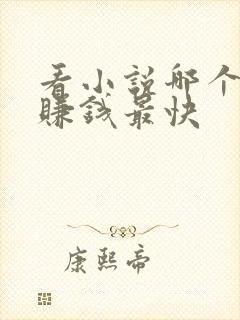 看小说哪个
赚钱最快
康熙帝